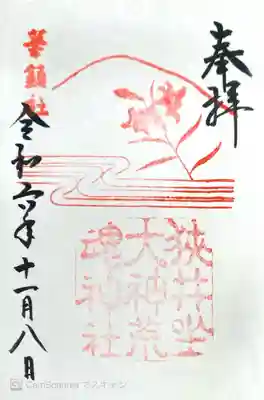 奉拝
狹井坐
大神荒
魂神社
華鎮社
令和六年十一月八日
CamScanner でスキャン